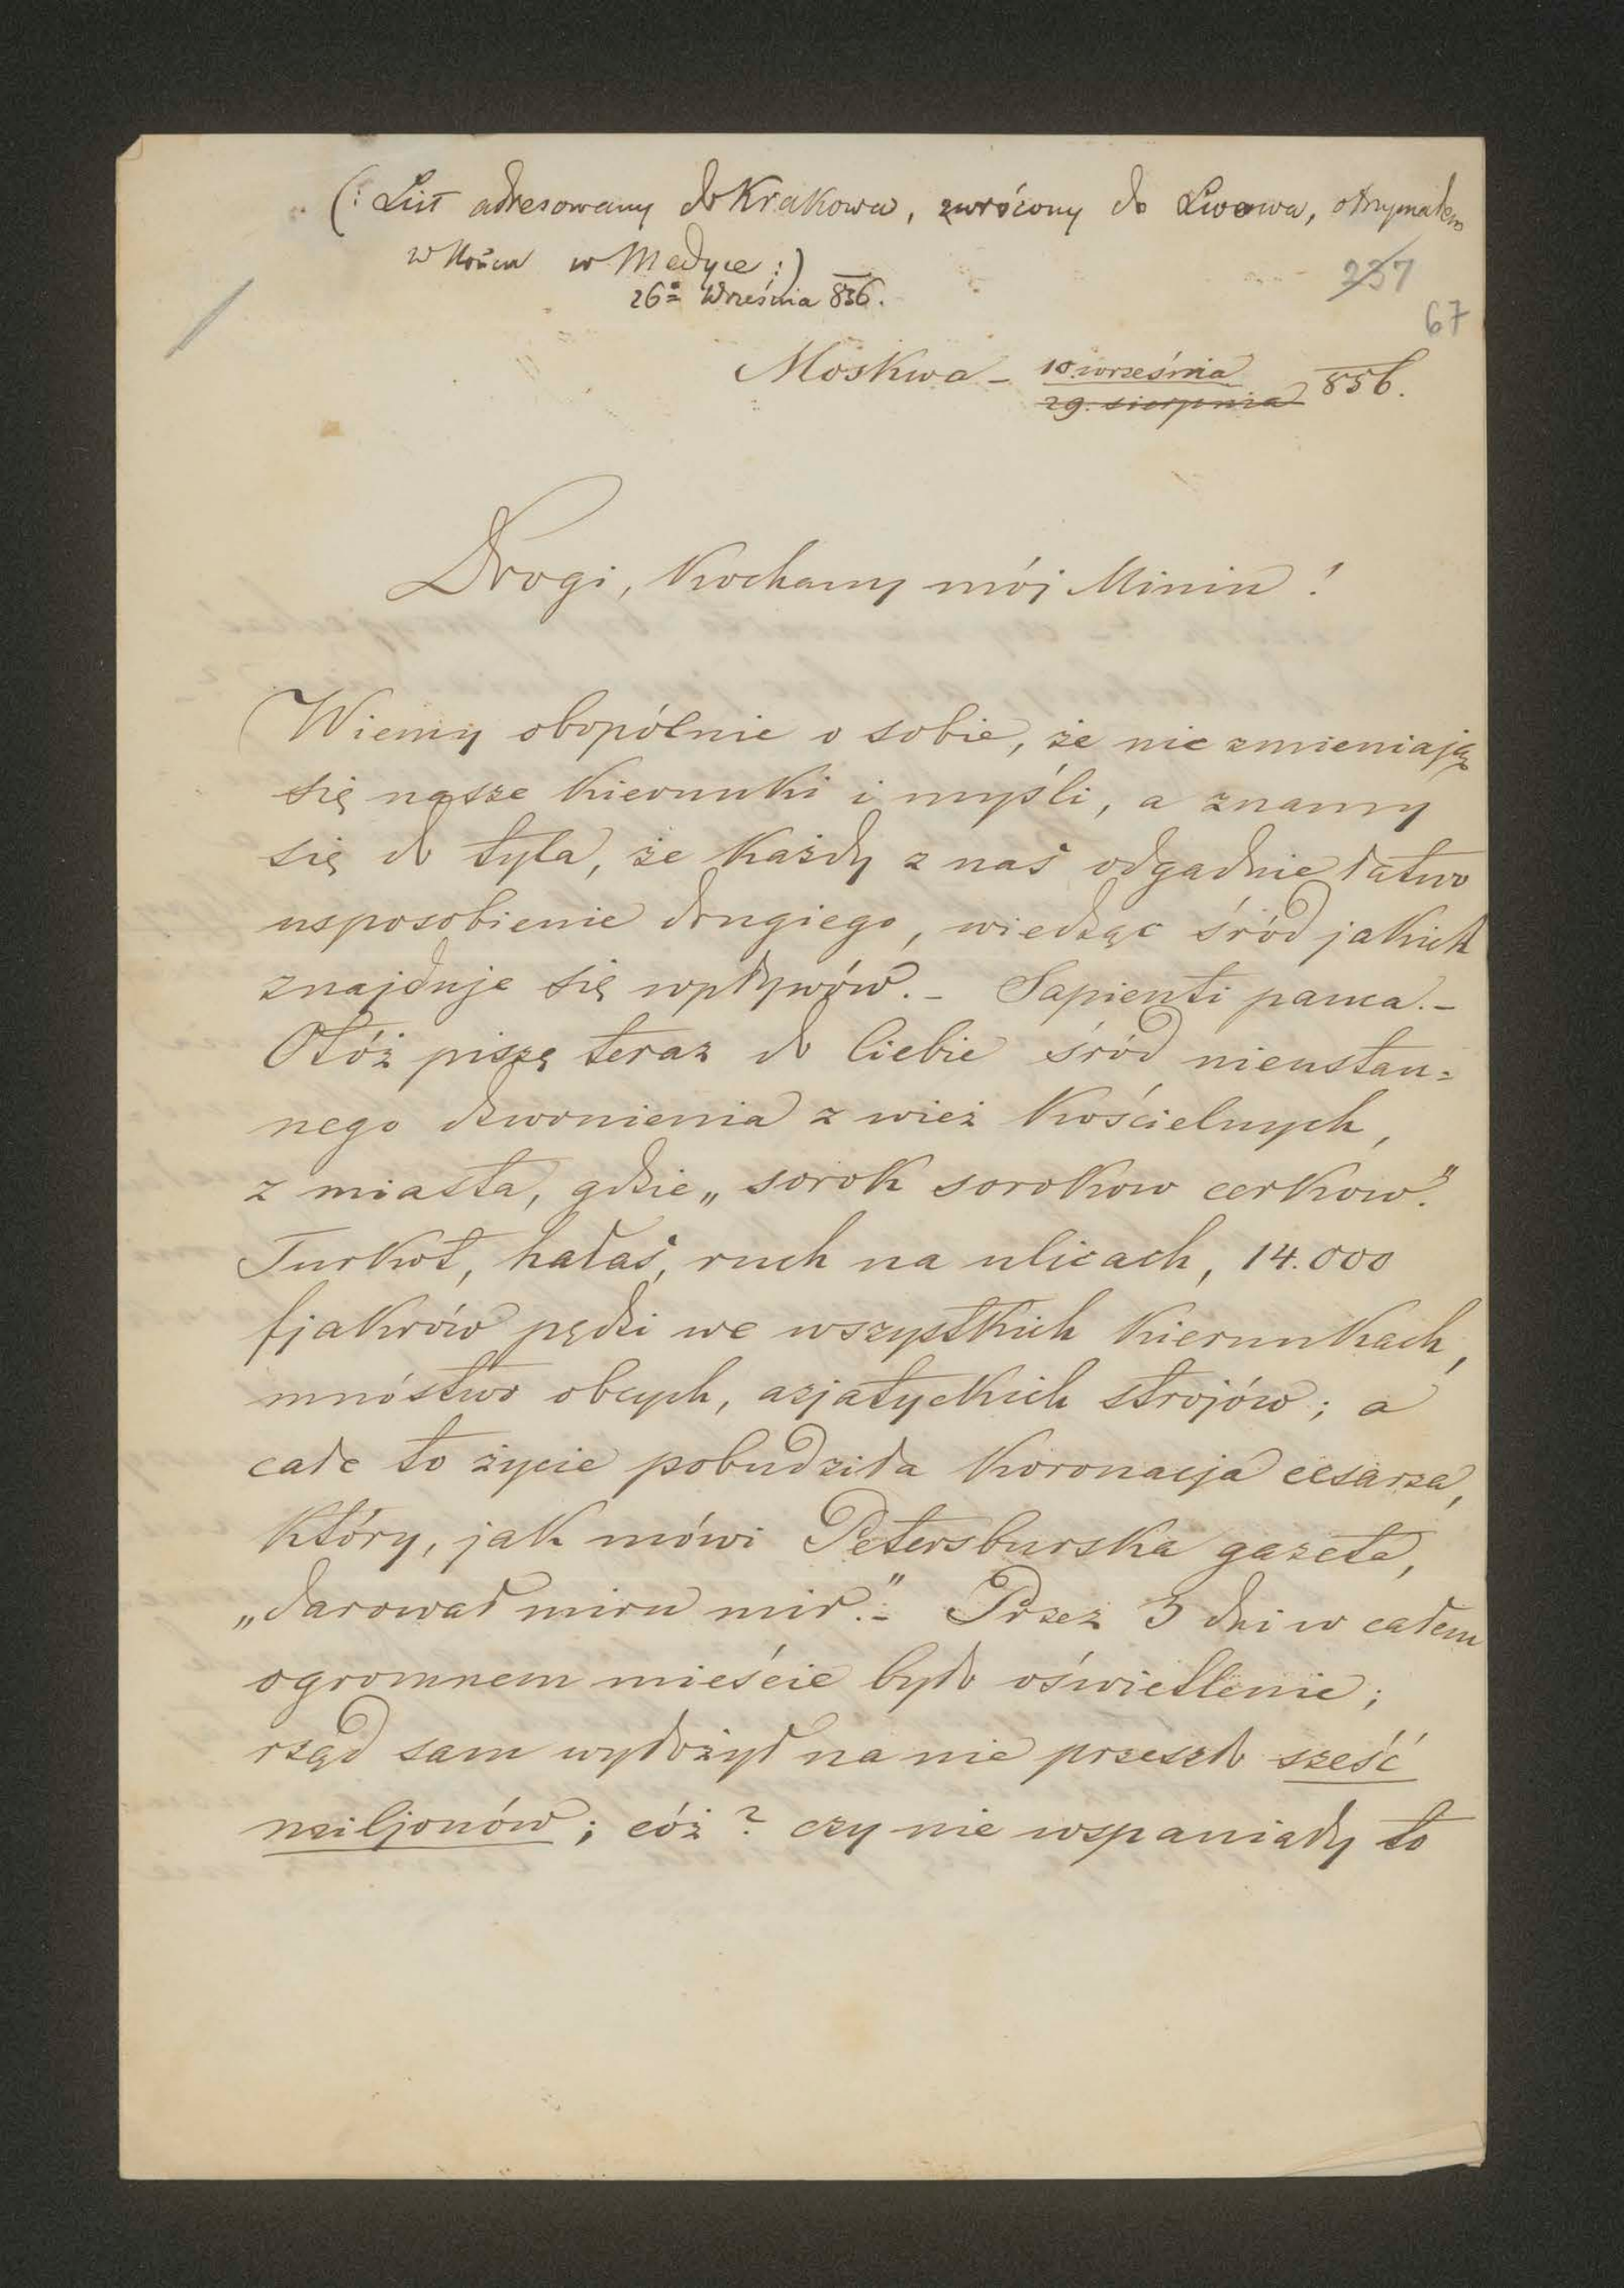 (: List adresowany do Krakowa, zwrócony do Lwowa, otrzymałem
w końcu w Medyce :)
26º Września 856.
237
67
Moskwa – 10 września
29. sierpnia 856.
Drogi, kochany mój Minin!
Wiemy obopólnie o sobie, że nie zmieniają
się nasze kierunki i myśli, a znamy
się do tyla, że każdy z nas odgadnie łatwo
usposobienie drugiego, wiedząc śród jakich
znajduje się wpływów. – Sapienti pauca. –
Otóż piszę teraz do Ciebie śród nieustan=
nego dzwonienia z wież kościelnych,
z miasta, gdzie „sorok sorokow cerkow."
Turkot, hałas, ruch na ulicach, 14.000
fjakrów pędzi we wszystkich kierunkach,
mnóstwo obcych, azjatyckich strojów; a
całe to życie pobudziła koronacja cesarza,
który, jak mówi Petersburska gazeta,
„darował miru mir." – Przez 3 dni w całem
ogromnem mieście było oświetlenie;
rząd sam wyłożył na nie przeszło sześć
miljonów; cóż? czy nie wspaniały to